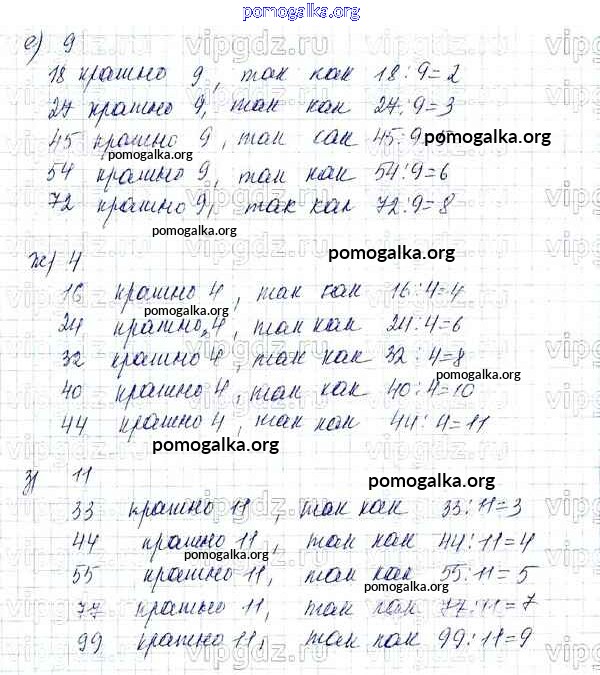 pomogalka.org
е) 9
18 кратно 9, так как 18:9=2
27 кратно 9, так как 27:9=3
45 кратно 9, так как 45:9=5
pomogalka.org
pomogalka.org
54 кратно 9, так как 54:9=6
72 кратно 9, так как 72:9=8
pomogalka.org
pomogalka.org
ж) 4
16 кратно 4, так как 16:4=4
pomogalka.org
24 кратно 4, так как 24:4=6
32 кратно 4, так как 32:4=8
pomogalka.org
40 кратно 4, так как 40:4=10
44 кратно 4, так как 44:4=11
pomogalka.org
з) 11
pomogalka.org
33 кратно 11, так как 33:11=3
44 кратно 11, так как 44:11=4
pomogalka.org
55 кратно 11, так как 55:11=5
pomogalka.org
77 кратно 11, так как 77:11=7
99 кратно 11, так как 99:11=9